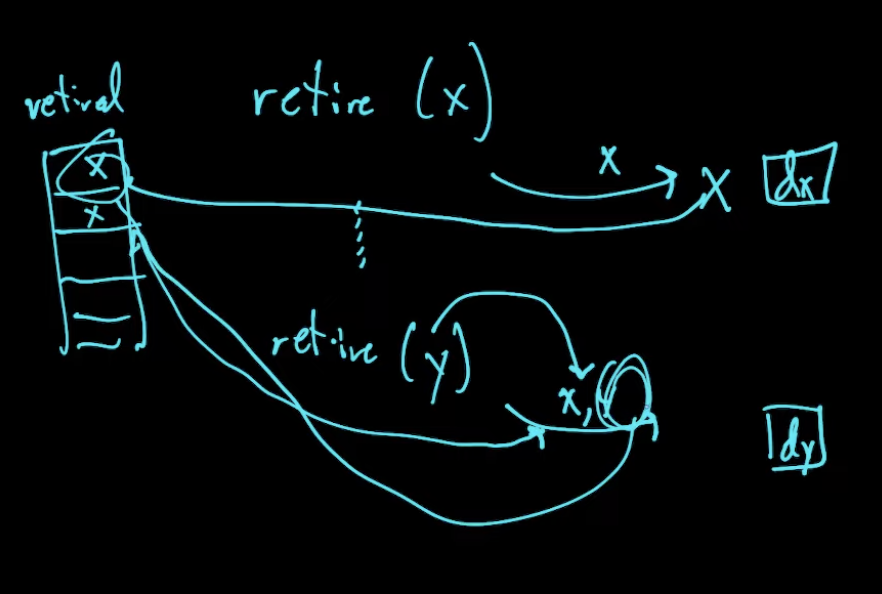 retired
retire (x)
x
x
x
X
dx
retire (y)
x,
dy